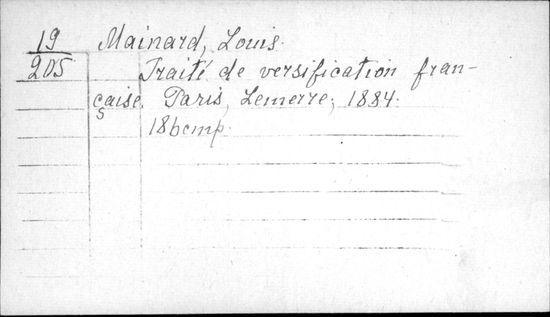 19 Mainard, Louis.
205 Traité de versification fran-
çaise. Paris, Lemerre, 1884.
186 cmp.